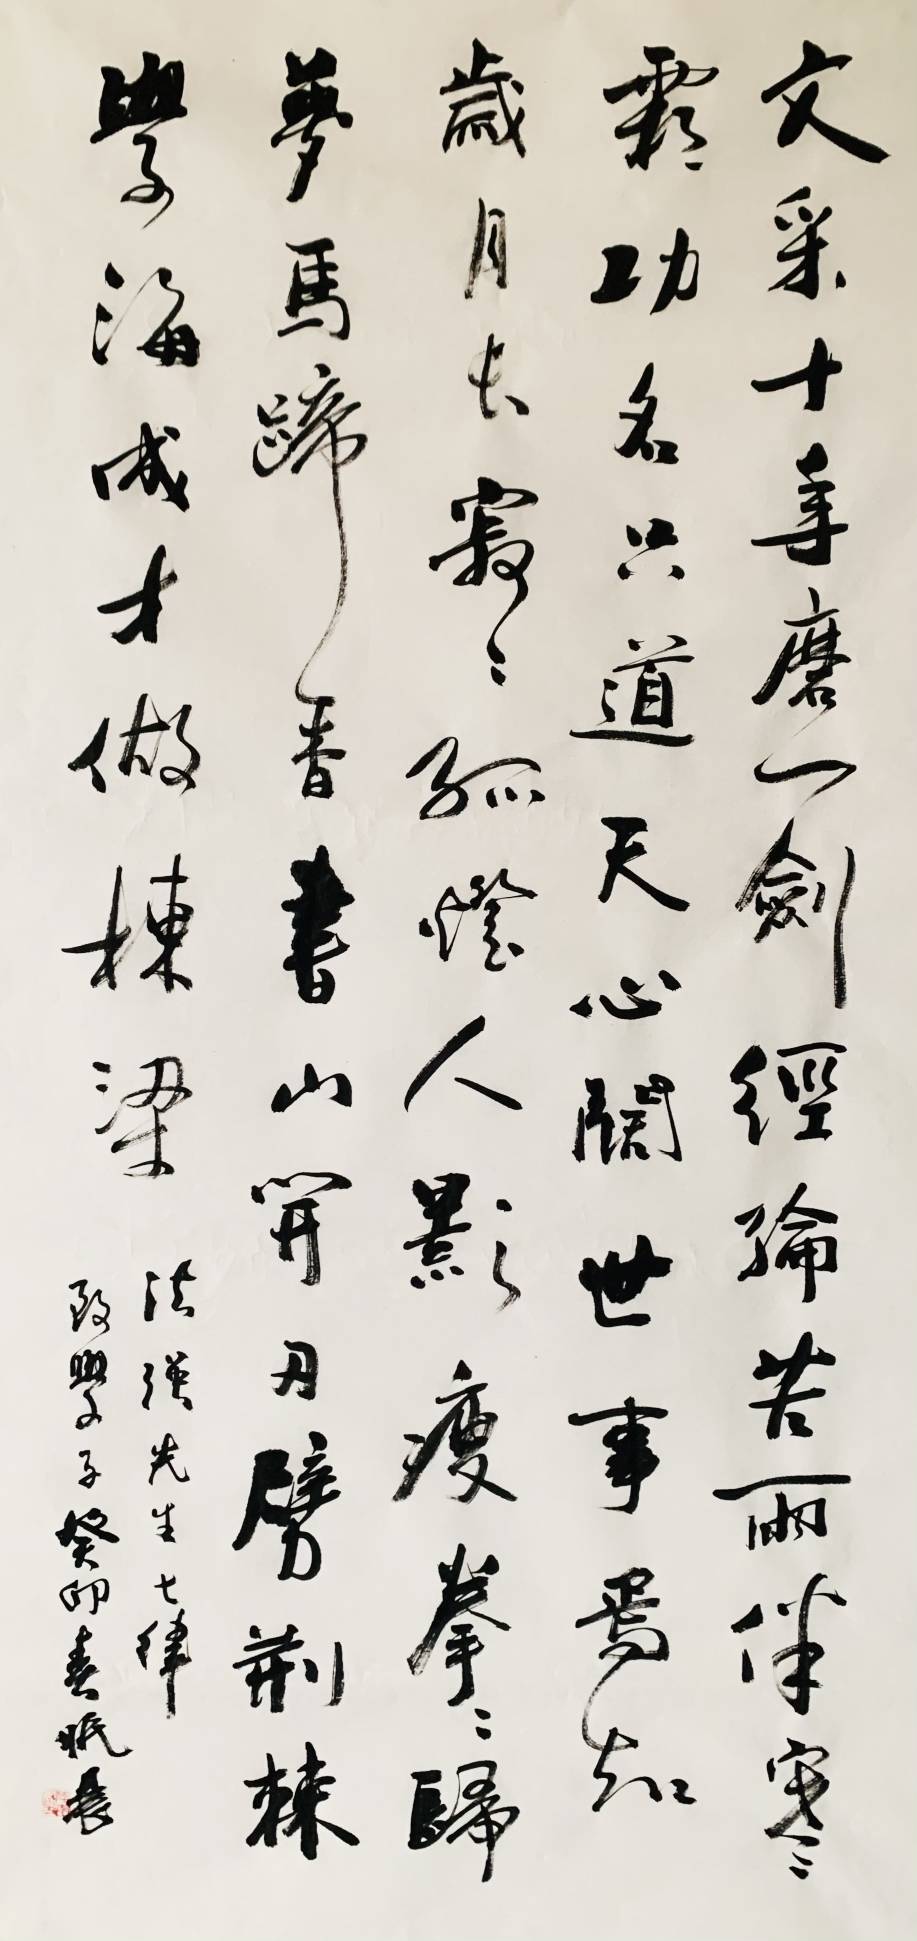 文采十年磨一劍經綸苦雨伴寒
霜功名只道天心闊世事焉知
歲月長寂〻孤燈人影瘦拳〻歸
夢馬蹄香書山開刃劈荊棘
學海成才做棟梁
法強先生七律
致學子癸卯春曉晨